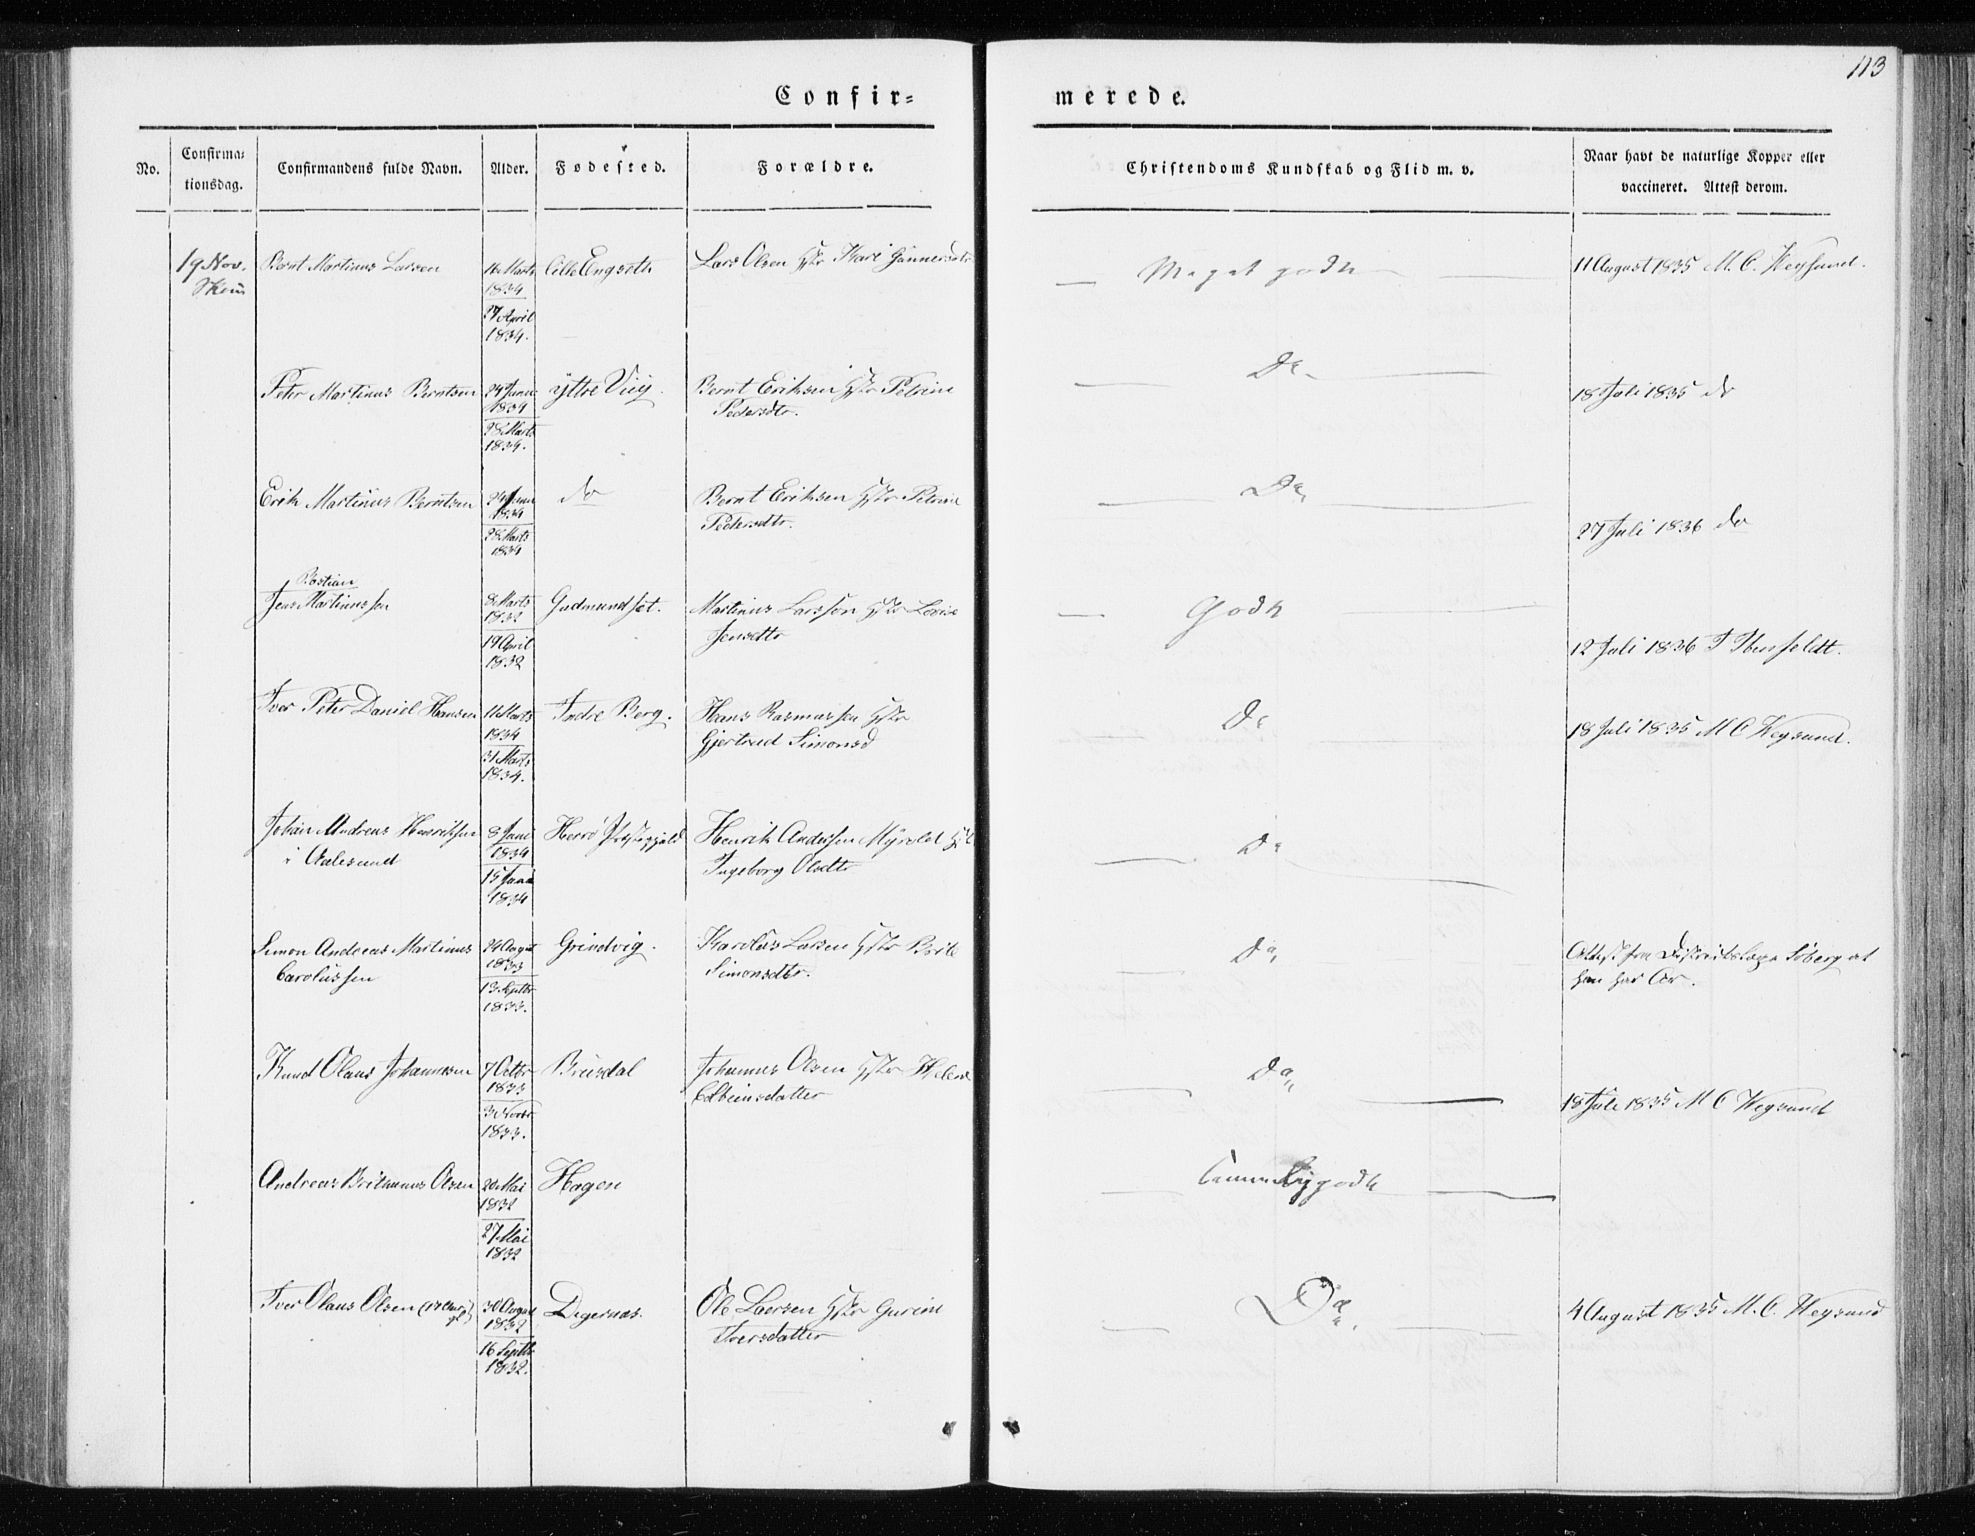 113
Confir=
merede.
No.
Confirma=
tionsdag.
Confirmandens fulde Navn.
Alder.
Fødested.
Forældre.
Christendoms Kundskab og Flid m. v.
Naar havt de naturlige Kopper eller
vaccineret. Attest derom.
19 Nov.
Bernt Martinus Larsen
Marts
1834
27 April
1834.
Lille Engseth
Lars Olsen Hstr Kari Gunnersdtr
Meget godt
11 August 1835 M. C. Wegsund.
Peter Martinus Berntsen
24 Janu
1834
28 Marts
1834.
yttre Viig.
Bernt Eriksen Hstr Petrine
Pedersdtr.
Do
18 Juli 1835 do
Erik Martinus Berntsen
24 Janu
1834
28 Marts
1834
do
Bernt Eriksen Hstr Petrine
Pedersdtr.
Do
27 Juli 1836 do
Bastian
Jens Martinussen
8 Marts
1832
19 April
1832
Gudmundset.
Martinus Larsson Hstr Lovise
Jensdtr
Godt
12 Juli 1836
Iver Peter Daniel Hansen
11 Marts
1834
31 Marts
1834.
Indre Berg.
Hans Rasmussen Hstr
Gjertrud Simonsd
Do
18 Juli 1835 M C Wegsund.
Johan Andreas Henriksen
i Aalesund
8 Juni
1834
15 Juni
1834
Herrø Præstegjæld
Henrik Andersen Myrvold Hst
Ingeborg Olsdtr
Do
Simon Andreas Martinus
Carolussen
24 August
1833
13 Septbr
1833.
Grindvig.
Karolus Larsen Hstr Brite
Simonsdtr.
Do
Attest fra Districtslæge Søberg at
han har Ar.
Knud Olaus Johannesen
7 Octbr
1833
3 Novbr
1833.
Brusdal
Johannes Olsen Hstr Helene
Do
18 Juli 1835 M C Wegsund
Andreas Olsen
20 Mai
1832
27 Mai
1832
Hagen
Temmelig godt
Iver Olaus Olsen
30 August
1832
16 Septbr
1832.
Degernæs.
Ole Larsen Hstr Gurine
Iversdatter
Do
4 August 1835 M. C. Wegsund